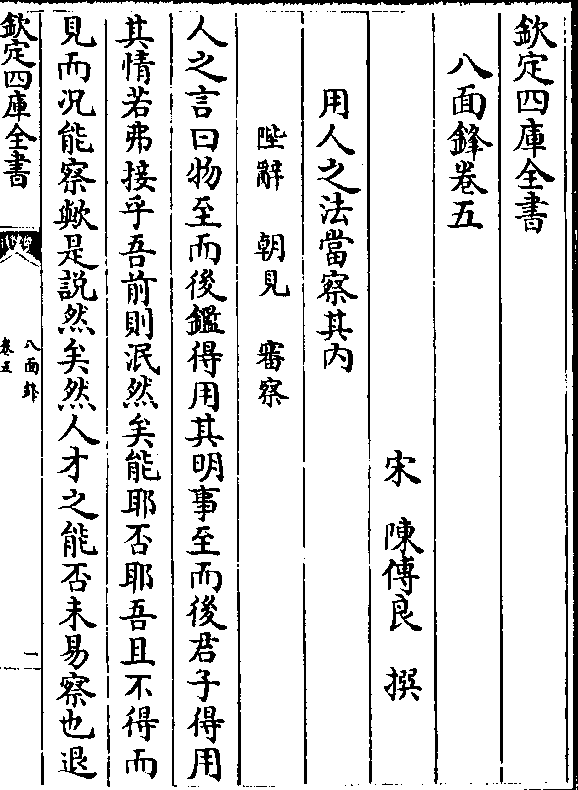 欽定四庫全書
八面鋒卷五
宋 陳傅良 撰
用人之法當察其内
陛辭 朝見 審察
人之言曰物至而後鑑得用其明事至而後君子得用
其情若弗接乎吾前則泯然矣能耶否耶吾且不得而
見而况能察歟是説然矣然人才之能否未易察也退
欽定四庫全書
八面鋒
卷五
一